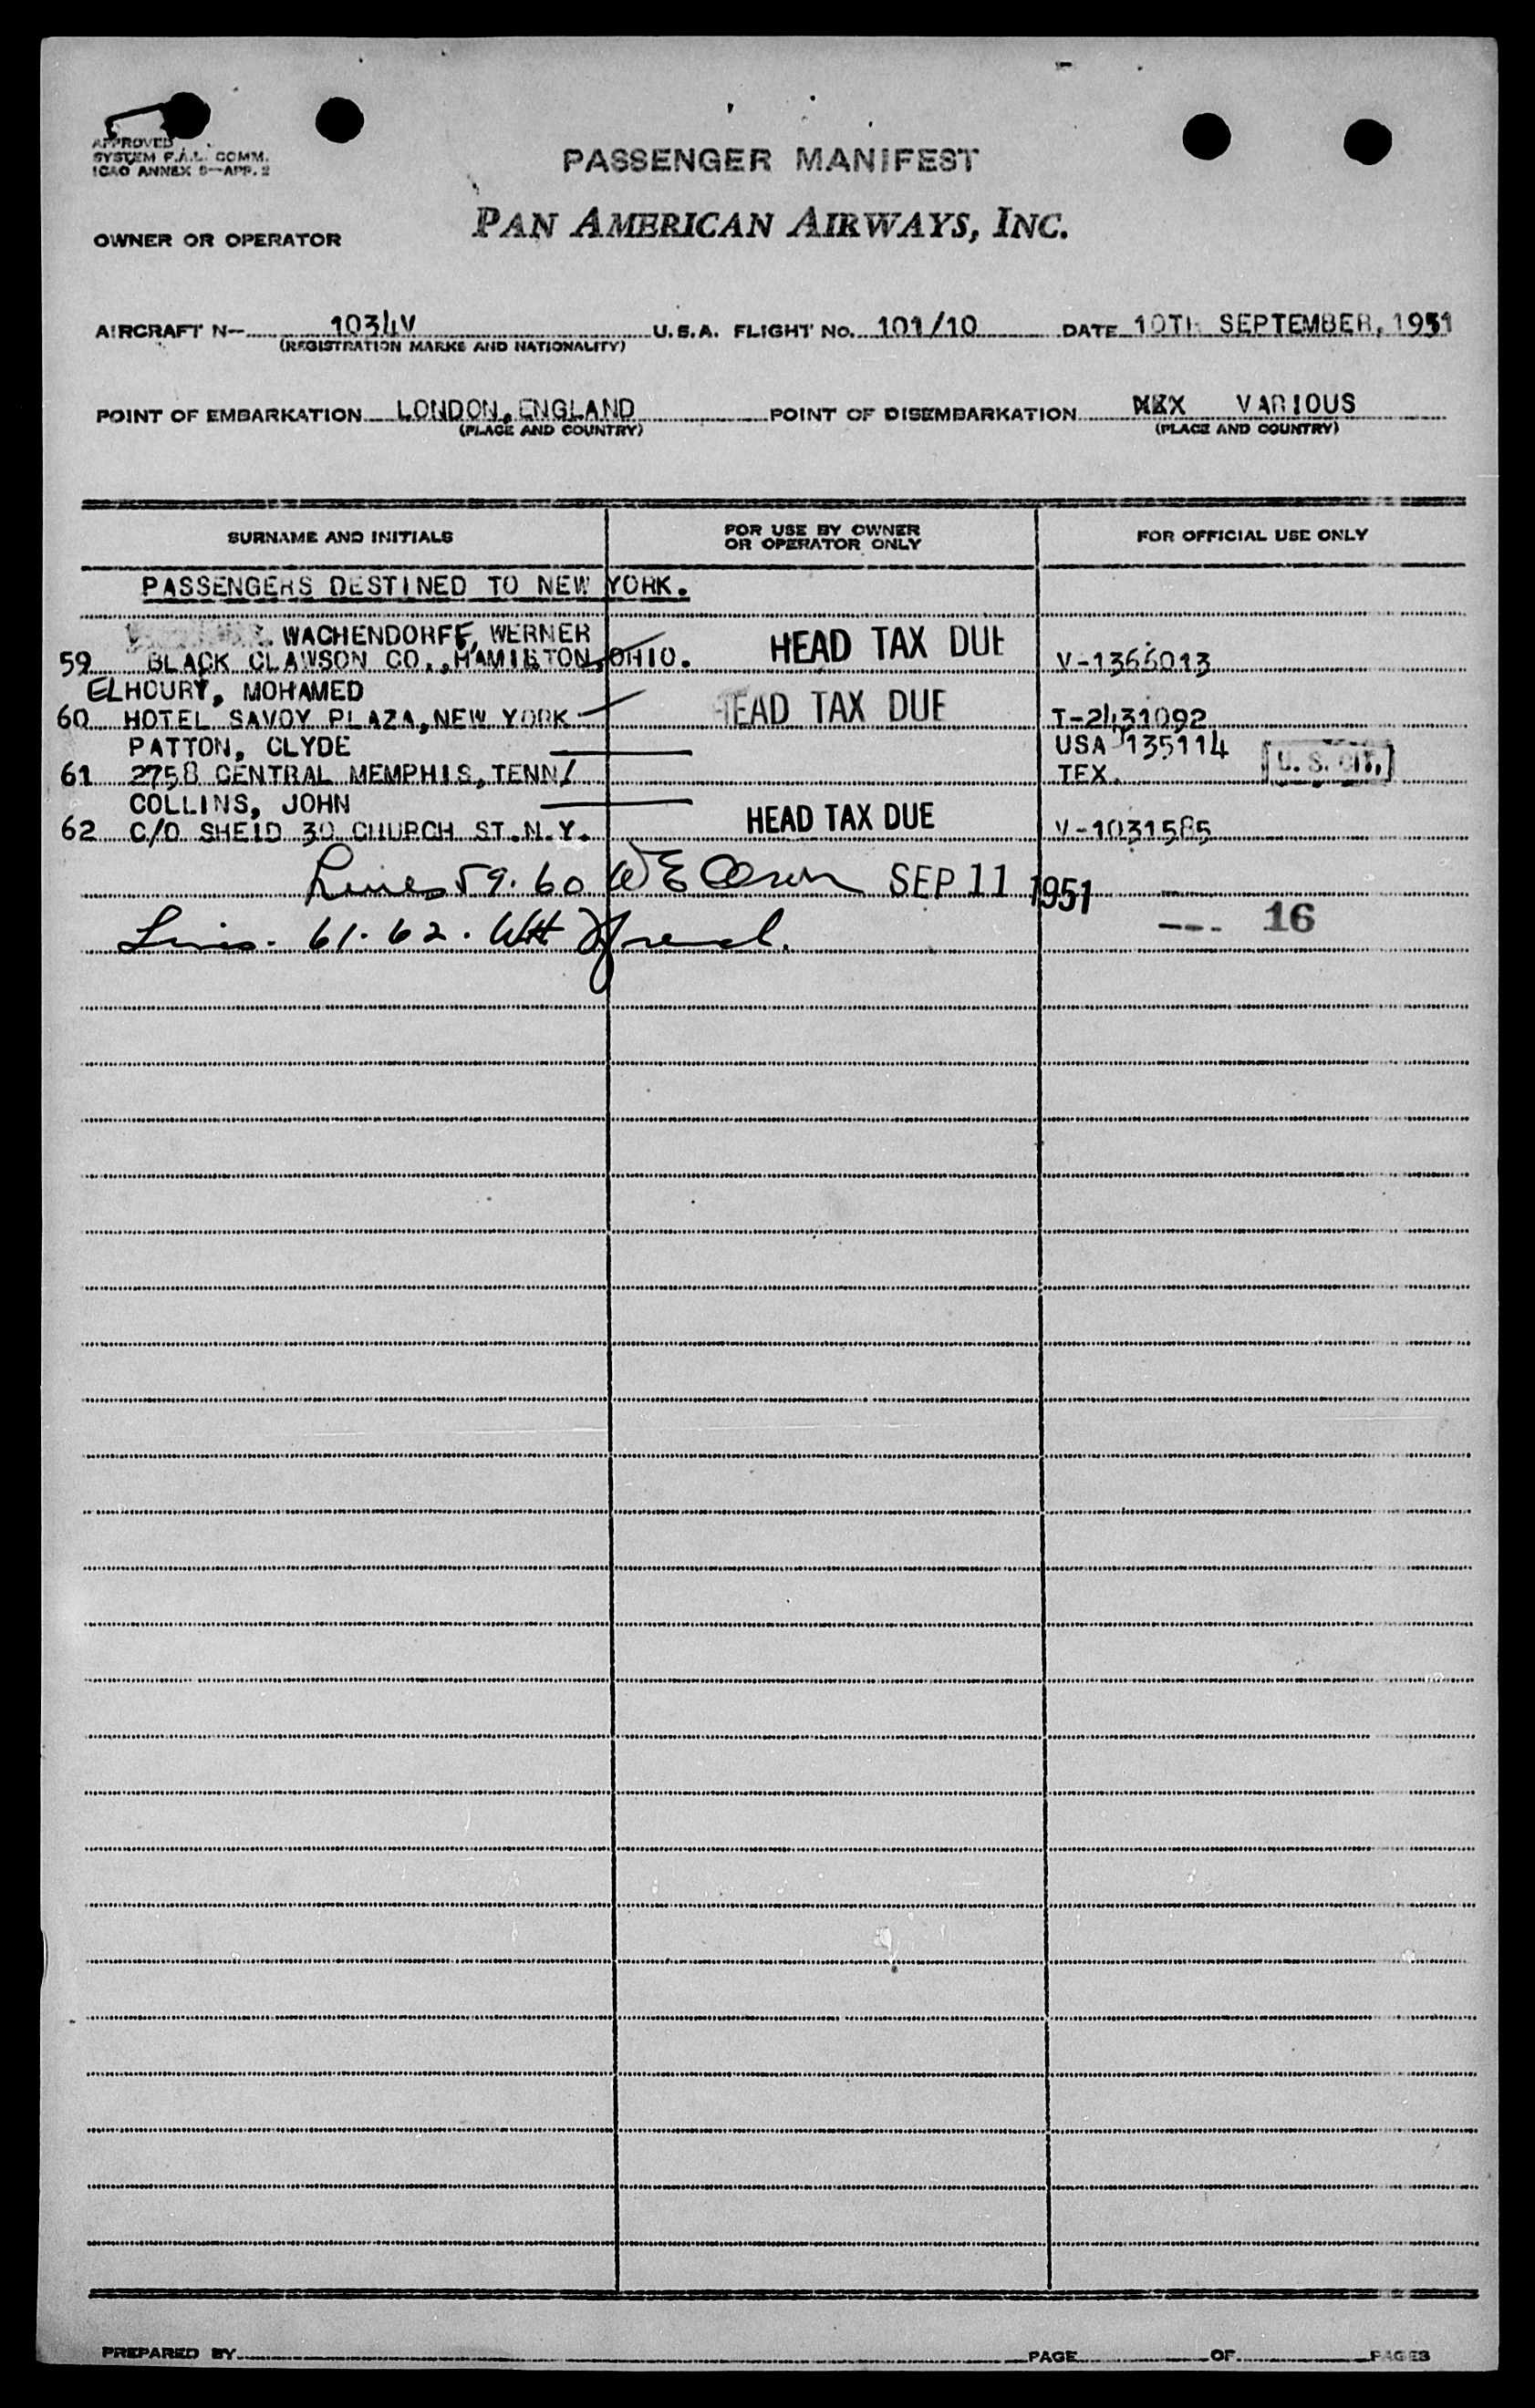 APPROVED
SYSTEM F.A.L. COMM.
ICAO ANNEX 9—APP. 2
PASSENGER MANIFEST
OWNER OR OPERATOR PAN AMERICAN AIRWAYS, INC.
AIRCRAFT N— 1034V U.S.A. FLIGHT No. 101/10 DATE 10TH SEPTEMBER, 1951
(REGISTRATION MARKS AND NATIONALITY)
POINT OF EMBARKATION LONDON, ENGLAND POINT OF DISEMBARKATION VARIOUS
(PLACE AND COUNTRY) (PLACE AND COUNTRY)
SURNAME AND INITIALS FOR USE BY OWNER OR OPERATOR ONLY FOR OFFICIAL USE ONLY
PASSENGERS DESTINED TO NEW YORK.
WACHENDORFF, WERNER HEAD TAX DUE
59 BLACK CLAWSON CO., HAMILTON, OHIO. V-1366013
ELHOURY, MOHAMED HEAD TAX DUE
60 HOTEL SAVOY PLAZA, NEW YORK T-2431092
PATTON, CLYDE USA 135114 U.S. CIT.
61 2758 CENTRAL MEMPHIS, TENN/ TEX.
COLLINS, JOHN HEAD TAX DUE
62 C/O SHEID 30 CHURCH ST. N.Y. V-1031585
Lines 59. 60 W E SEP 11 1951
Lines. 61. 62. WH French. --- 16
PREPARED BY PAGE OF PAGES